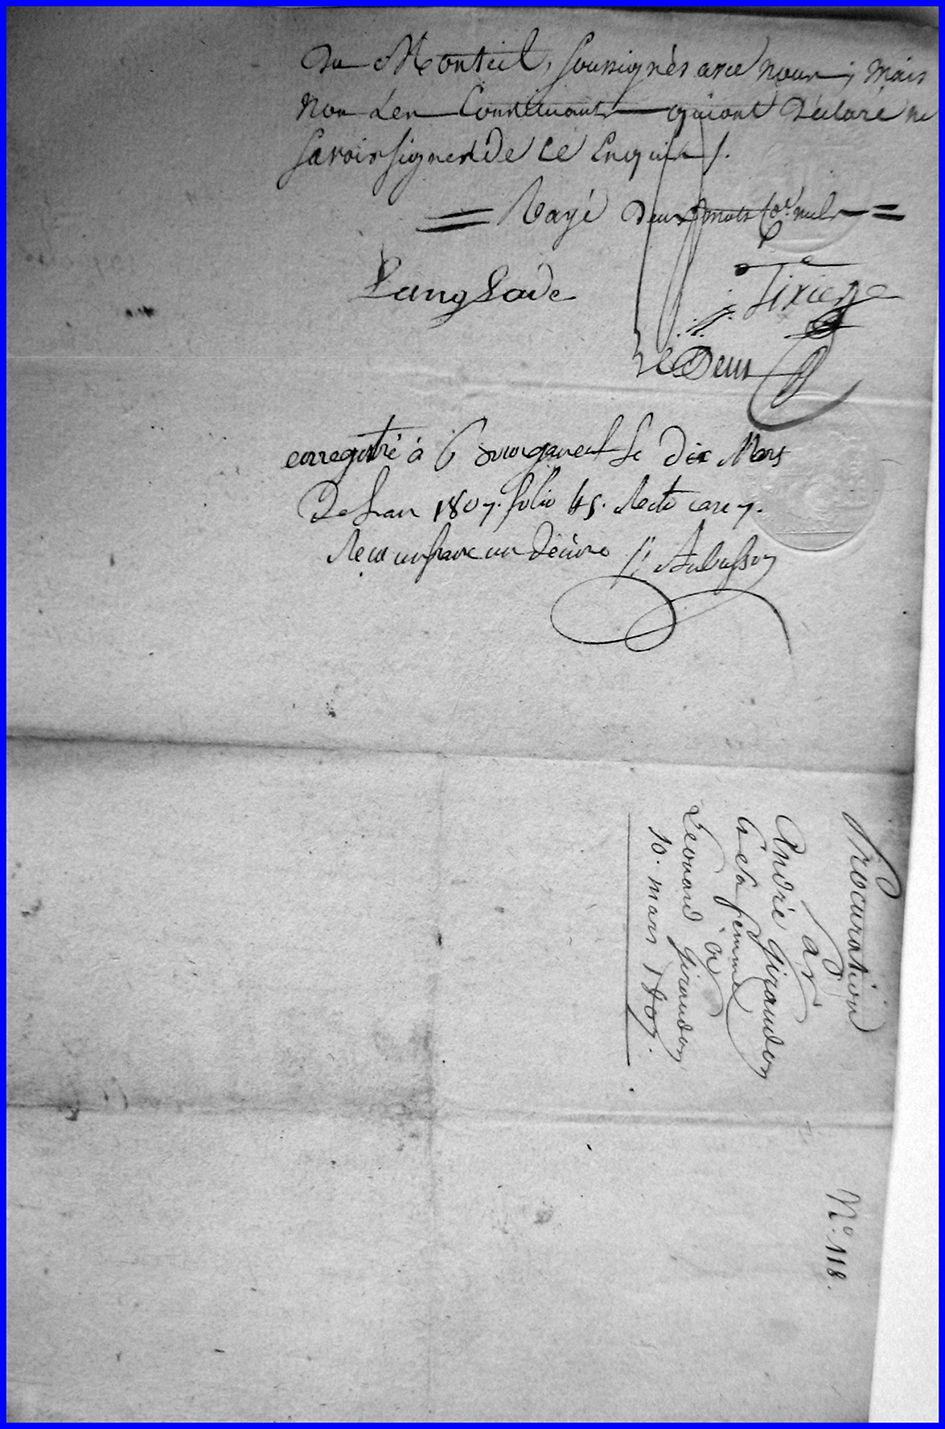 du Monteil, soussignés avec nous; mais
non les Constituants qui ont déclaré ne
savoir signer de ce Enquis /.
= Rayé deux mots co.e nuls =
Langlade Tixier
LeDeux
enregistré à Bourganeuf le dix Mars
de l'an 1807. folio 45. Recto case 7.
Reçu un franc un décime /: Aubusson
Procuration
par
André Giraudon
et sa femme
à
Léonard giraudon
10. mars 1807.
N.o 118.